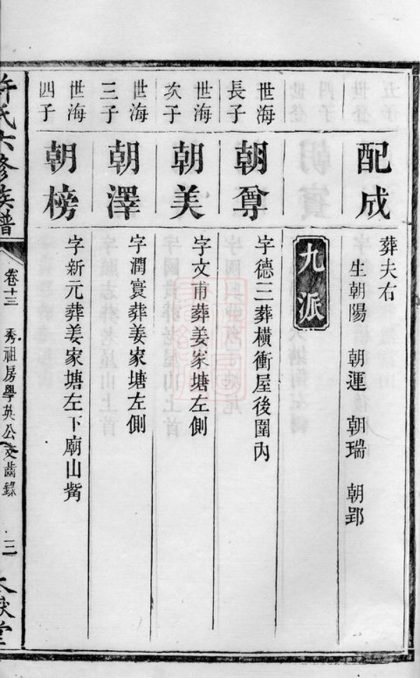 配成
葬夫右
生朝陽 朝運 朝瑞 朝郢
九派
世海長子
朝尊
字德三葬橫衝屋後圍內
世海次子
朝美
字文甫葬姜家塘左側
世海三子
朝澤
字潤寰葬姜家塘左側
世海四子
朝榜
字新元葬姜家塘左下廟山嘴
許氏六修族譜
卷十三
秀祖房學英公支齒錄
三
太嶽堂